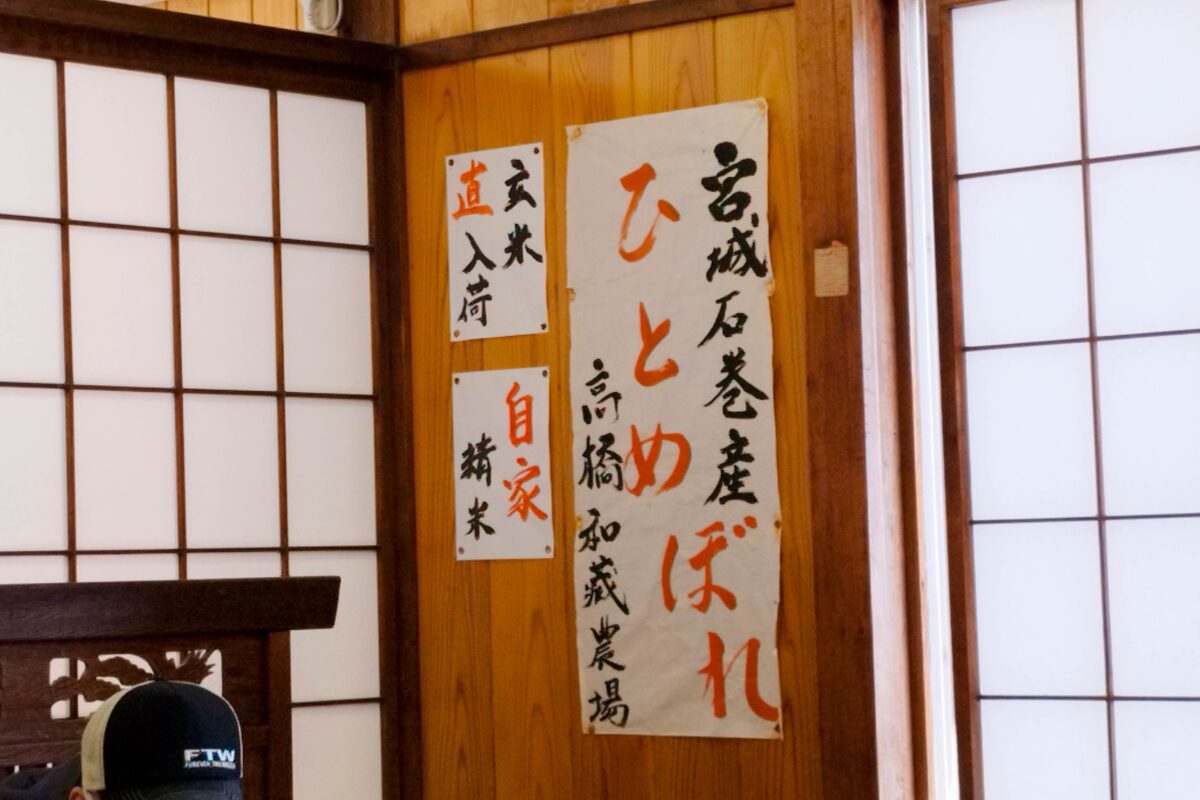 宮城石巻産
ひとめぼれ
高橋和蔵農場
玄米
直入荷
自家
精米
FTW